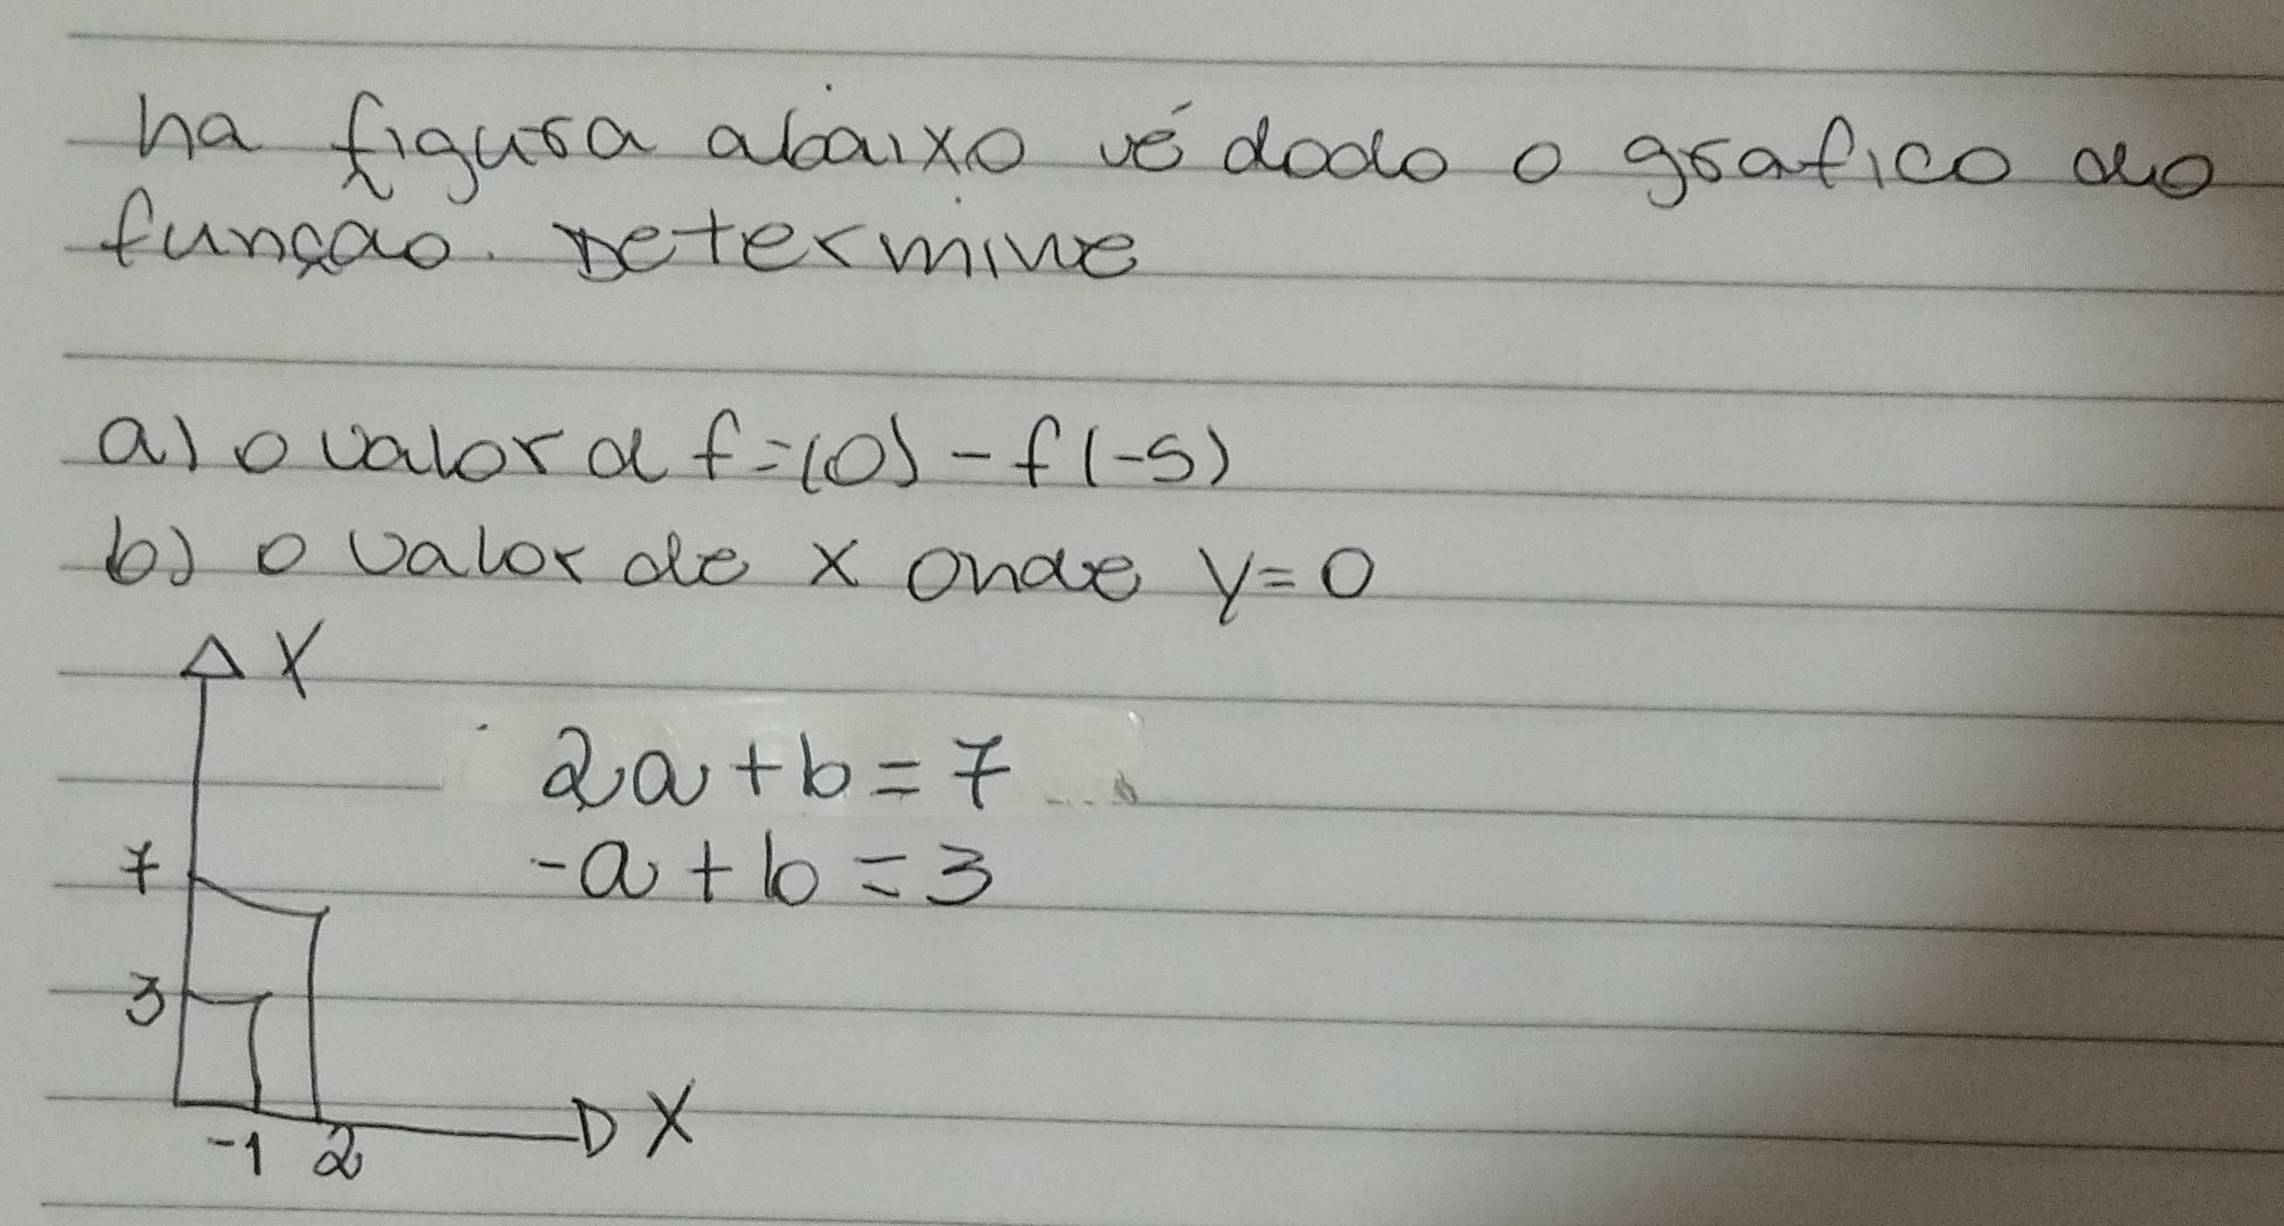 na figura abaixo vé dado o grafico do
função. Determine
a) o valor d f=(0) - f(-5)
b) o valor de x onde y=0
Y
2a+b=7
-a+b=3
7
3
-1 2
X